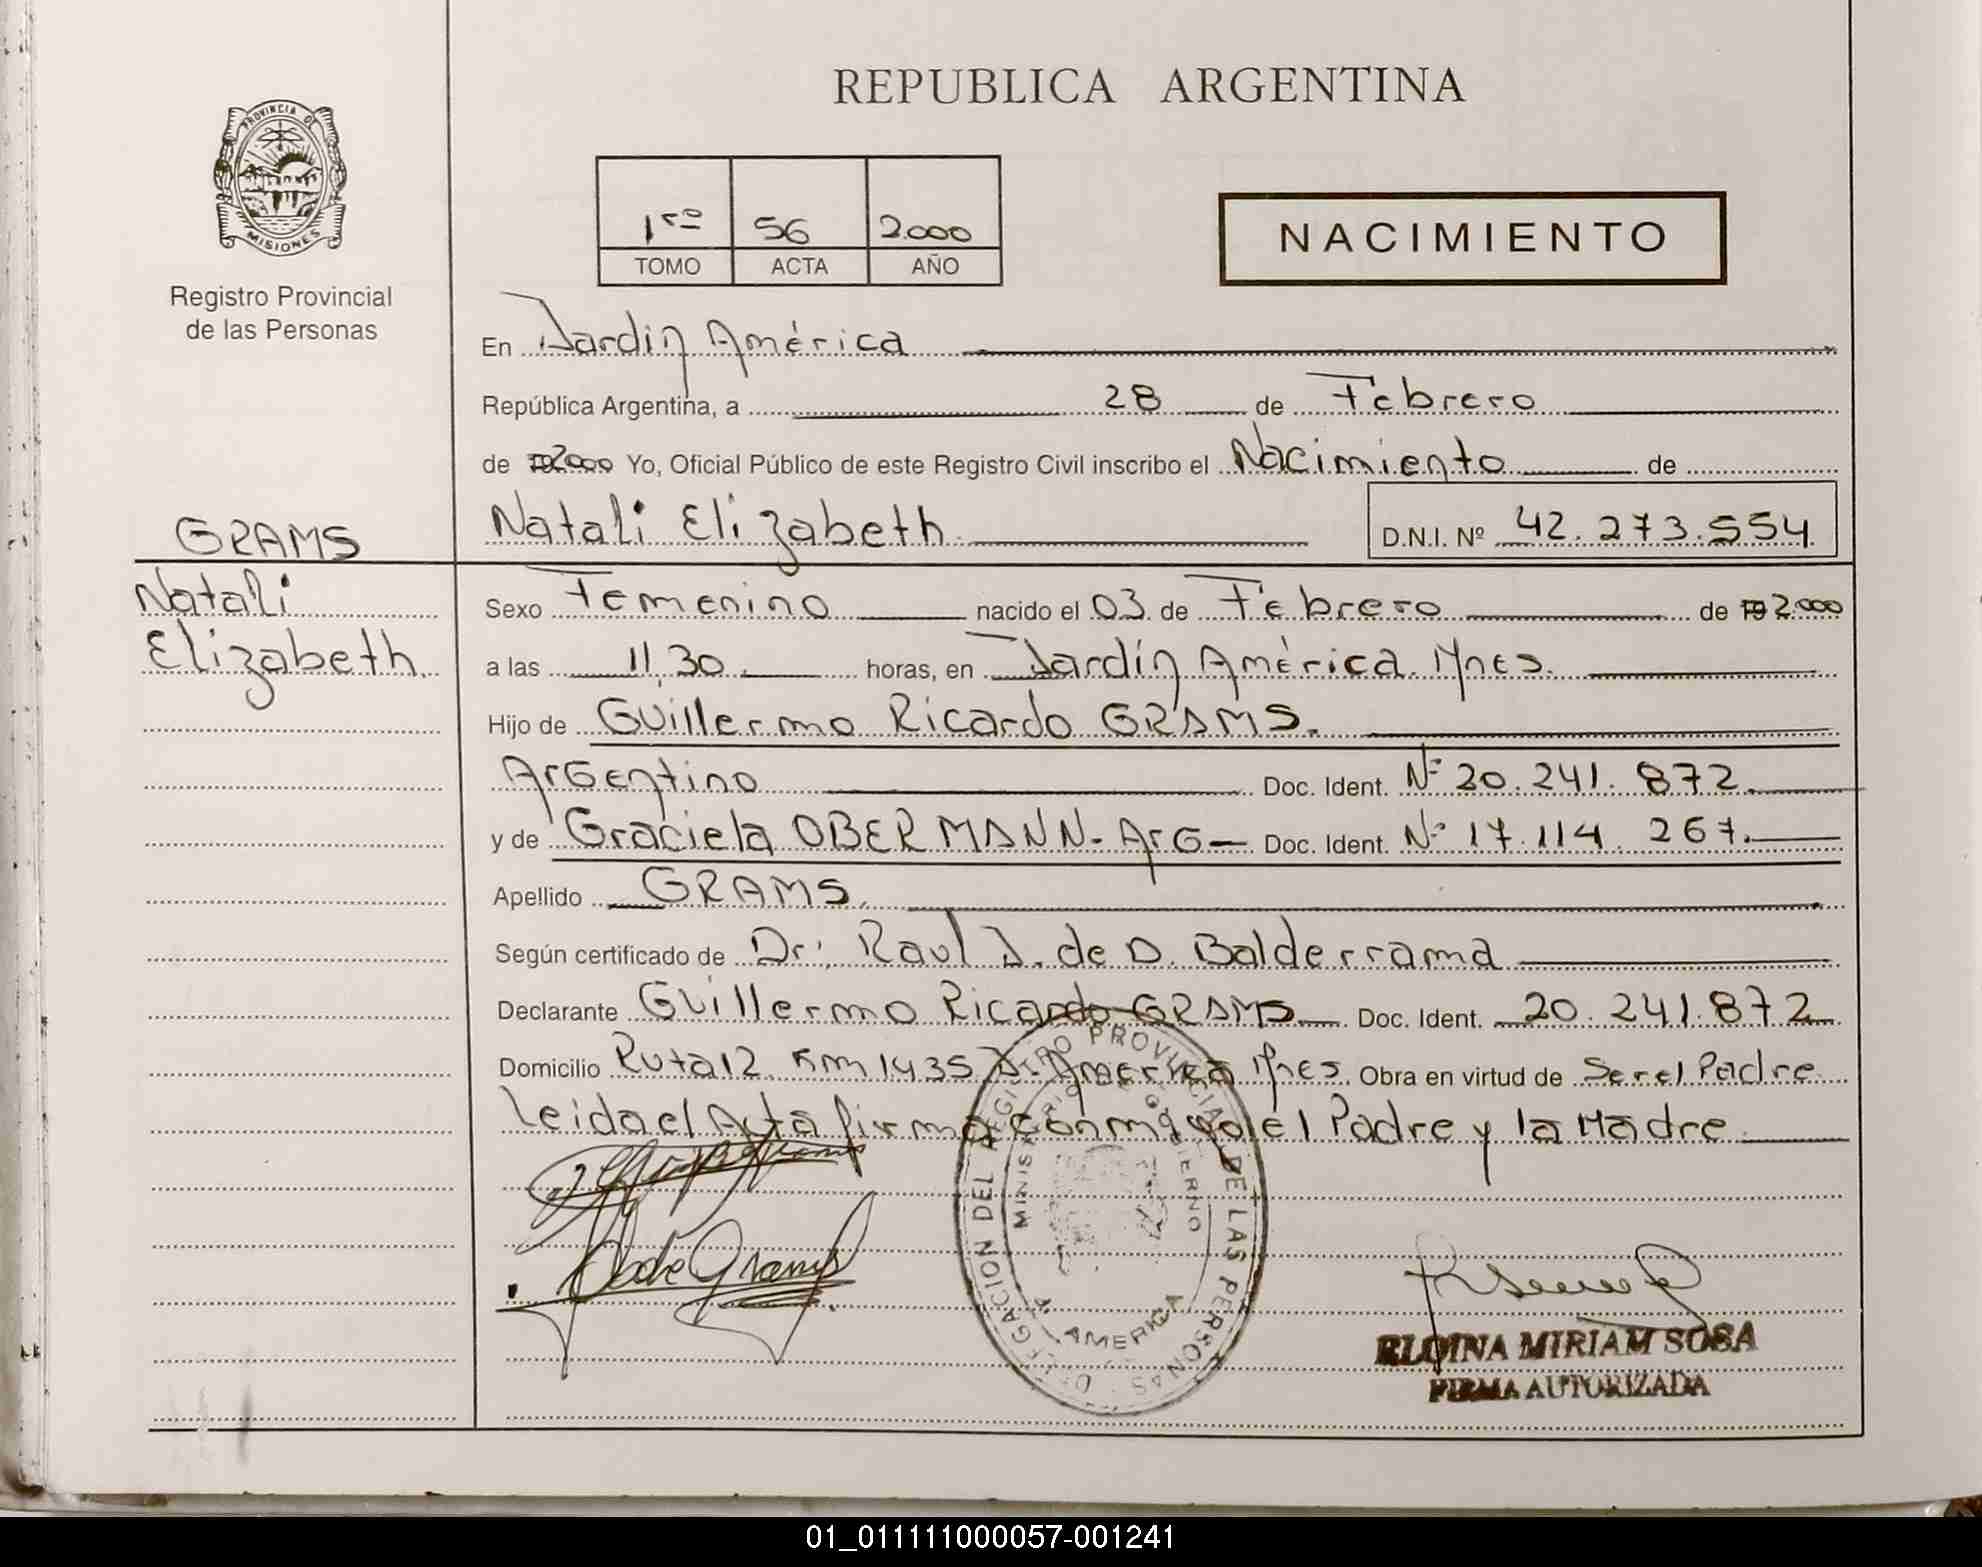 REPUBLICA ARGENTINA
PROVINCIA DE
MISIONES
Registro Provincial
de las Personas
1ro 56 2.000
TOMO ACTA AÑO
NACIMIENTO
En Jardin América
República Argentina, a 28 de Febrero
de 19 2000 Yo, Oficial Público de este Registro Civil inscribo el Nacimiento de
GRAMS
Natali Elizabeth D.N.I. Nº 42.273.554
Natali
Elizabeth
Sexo Femenino nacido el 03 de Febrero de 19 2.000
a las 11,30 horas, en Jardín América. Mnes.
Hijo de Guillermo Ricardo GRAMS.
Argentino Doc. Ident. Nº 20.241.872.
y de Graciela OBERMANN - Arg - Doc. Ident. Nº 17.114.267.
Apellido GRAMS.
Según certificado de Dr: Raul J. de D. Balderrama
Declarante Guillermo Ricardo GRAMS Doc. Ident. 20.241.872
Domicilio Ruta 12 Km 1435 J. America Mnes. Obra en virtud de Ser el Padre
Leida el Acta firma conmigo el Padre y la Madre
DELEGACION DEL REGISTRO PROVINCIAL DE LAS PERSONAS
MINISTERIO DE GOBIERNO
J. AMERICA
de Grams
ELOINA MIRIAM SOSA
FIRMA AUTORIZADA
01_011111000057-001241